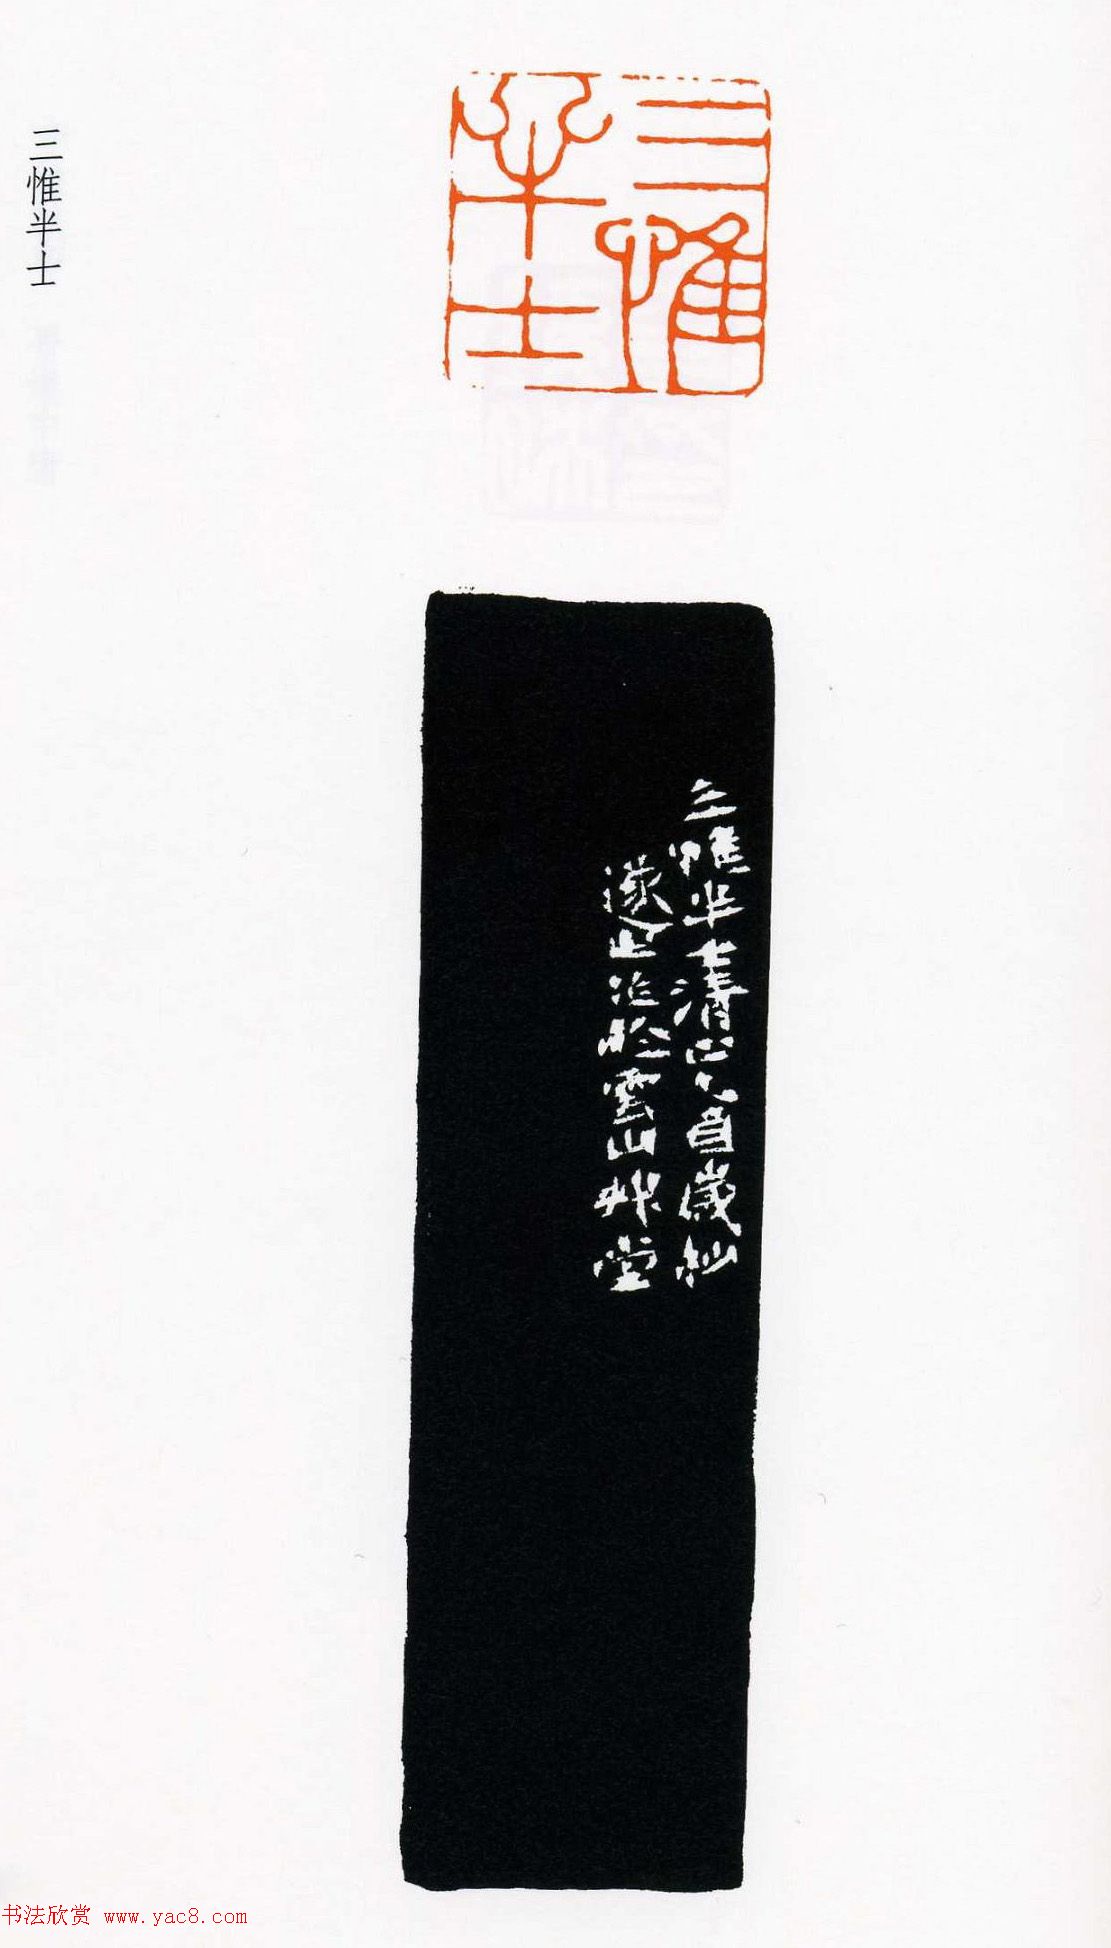 三惟半士
三惟半士
三惟半士清正之自歲杪
遂之作於雲山艸堂
书法欣赏 www.yac8.com